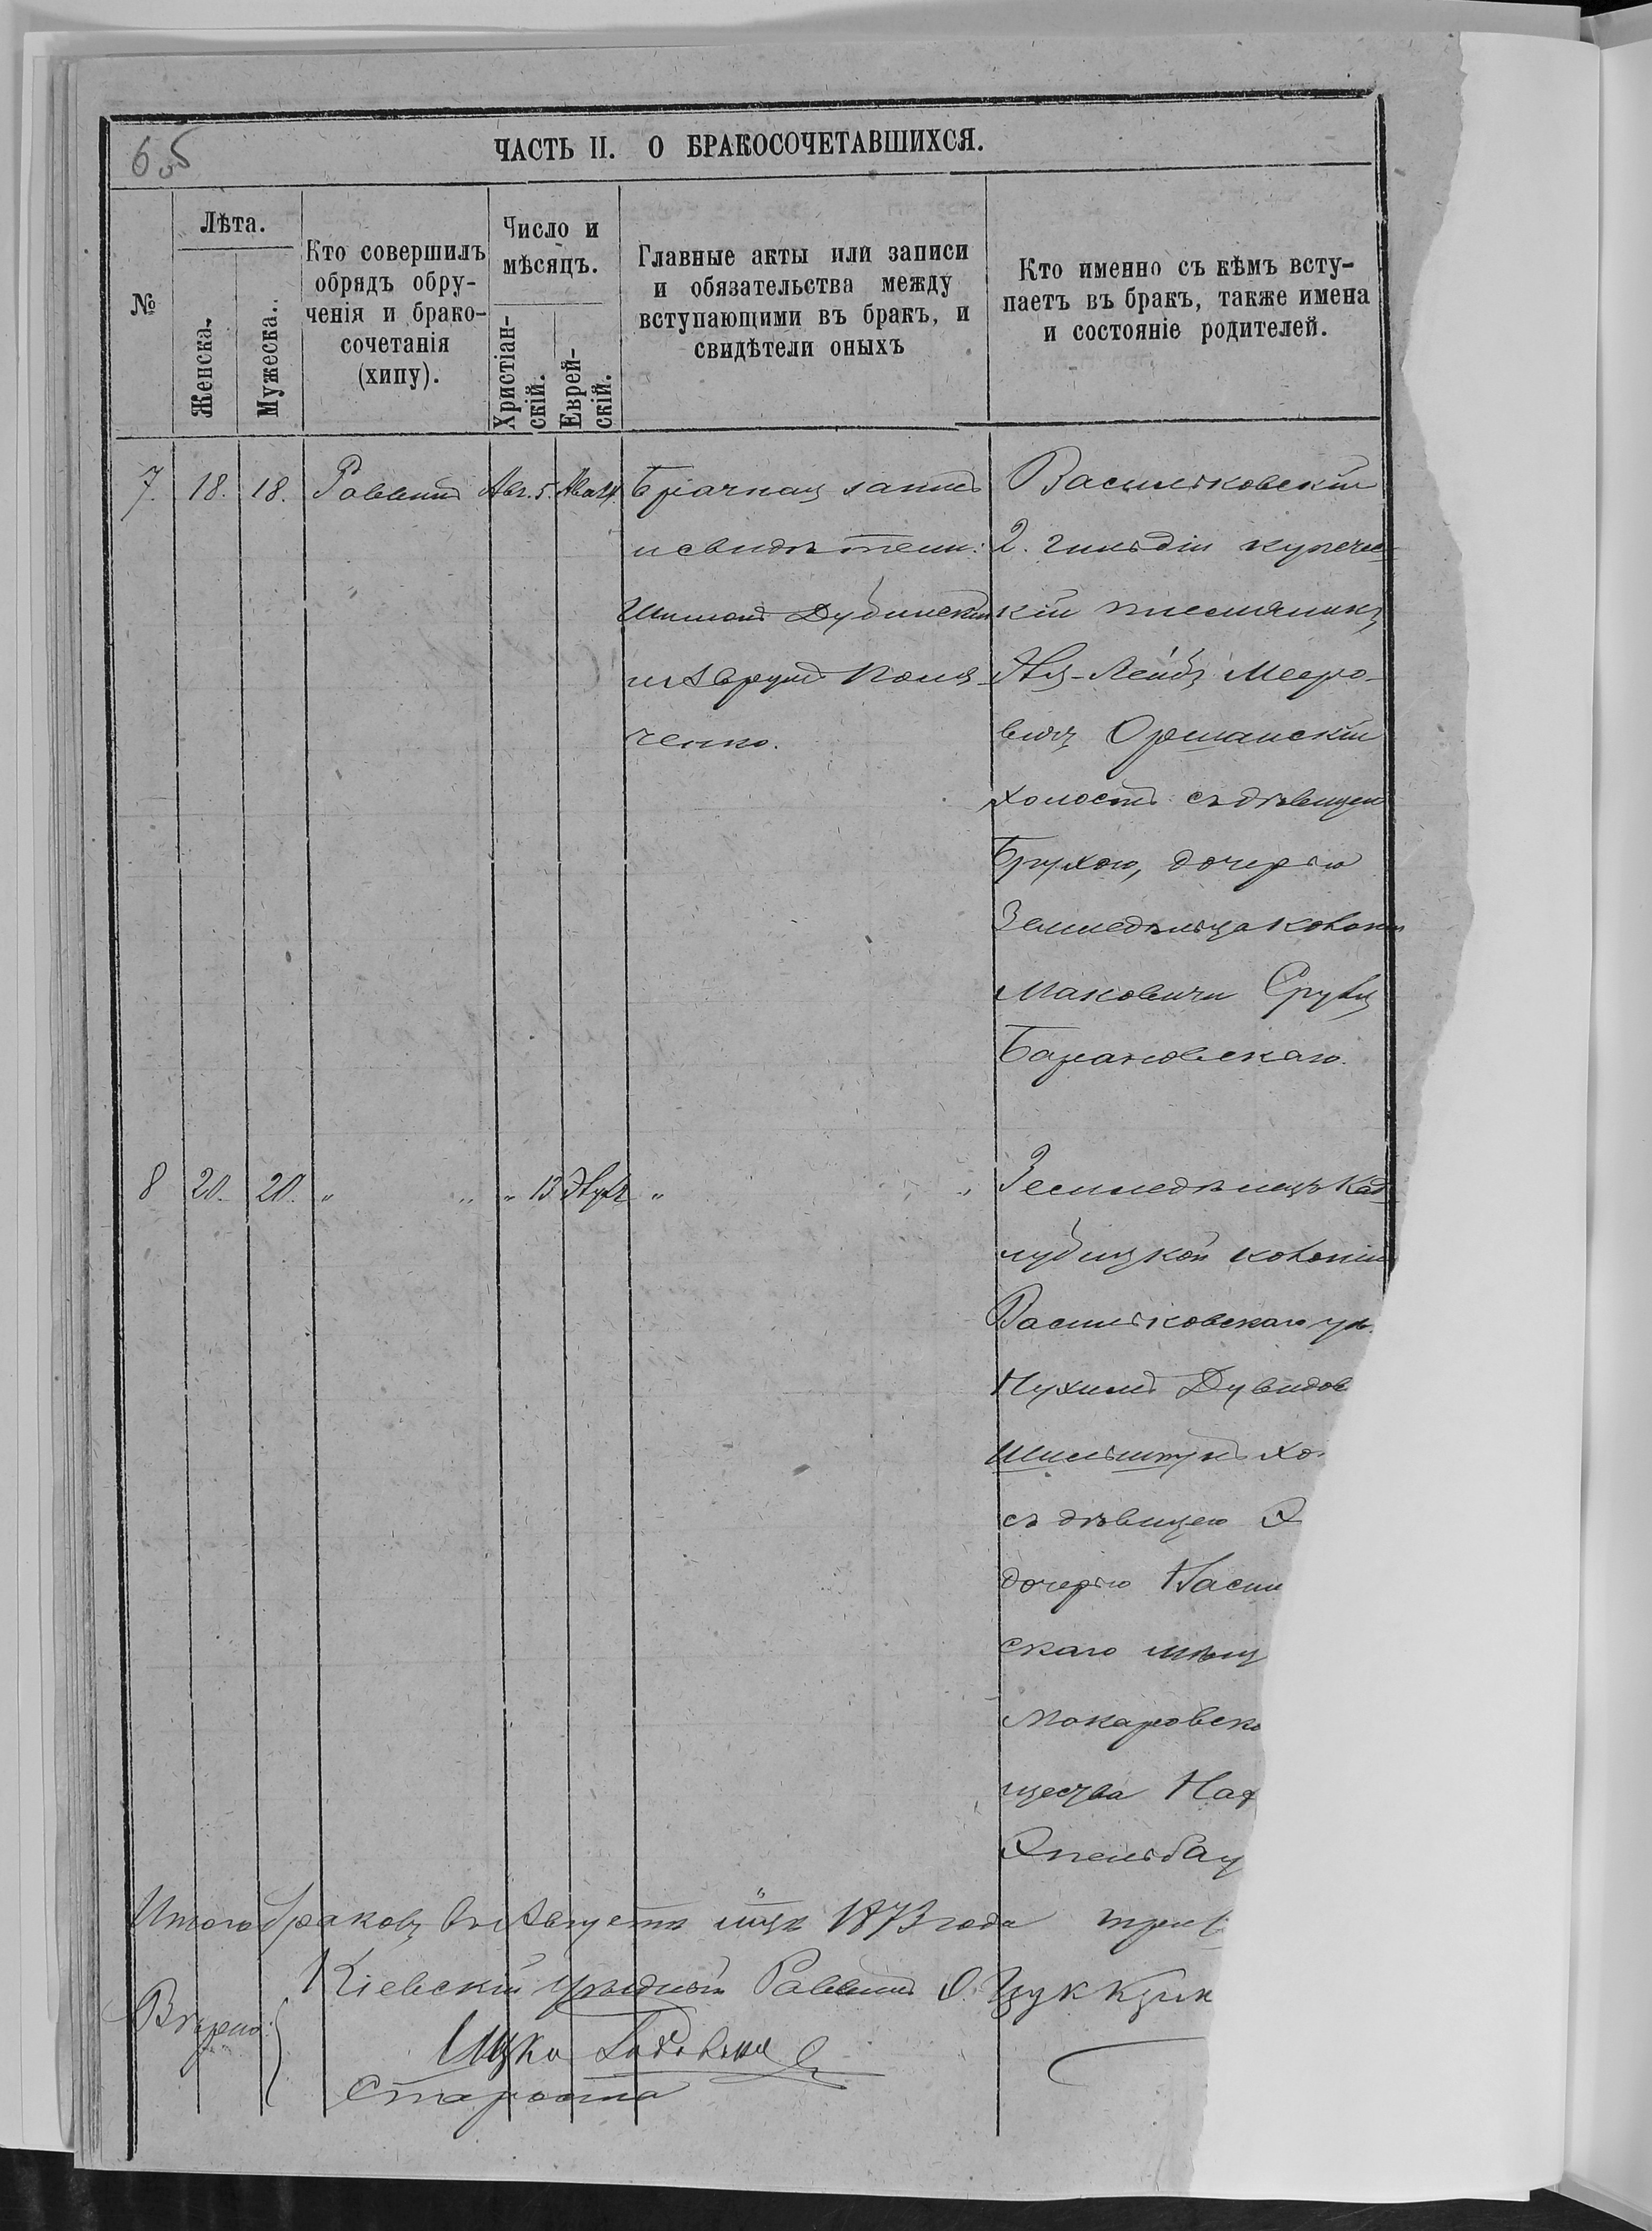 ЧАСТЬ II. О БРАКОСОЧЕТАВШИХСЯ.
№
Лѣта.
Женска.
Мужеска.
Кто совершилъ
обрядъ обру-
ченія и брако-
сочетанія
(хипу).
Число и
мѣсяцъ.
Христіан-
скій.
Еврей-
скій.
Главные акты или записи
и обязательства между
вступающими въ бракъ, и
свидѣтели оныхъ
Кто именно съ кѣмъ всту-
паетъ въ бракъ, также имена
и состояніе родителей.
7. 18. 18. Раввинъ Авг. 5.
Брачная запись
и свидѣтели:
Шимонъ Дубинскій
и Аврумъ
ченко.
Васильковскій
2. гильдіи купечес
кій племянникъ
Лейбъ Мееро-
вичъ Оршанскій
холостъ съ дѣвицею
Брухою, дочерью
Земледѣльца колоніи
Маковичи Сруля
Барановскаго.
8 20. 20. " " " 13 " "
Земледѣлецъ Кад
лубицкой колоніи
Васильковскаго уѣ.
Нухимъ Дувидов
Шильштунъ хо
съ дѣвицею
дочерью Васи
скаго мѣщ
Макаровско
щества
Эпельбау
Итого браковъ въ Августѣ м-цѣ 1873 года три
Кіевскій уѣздный Раввинъ О. Цуккерм
Вѣрно:
Ицко
Староста